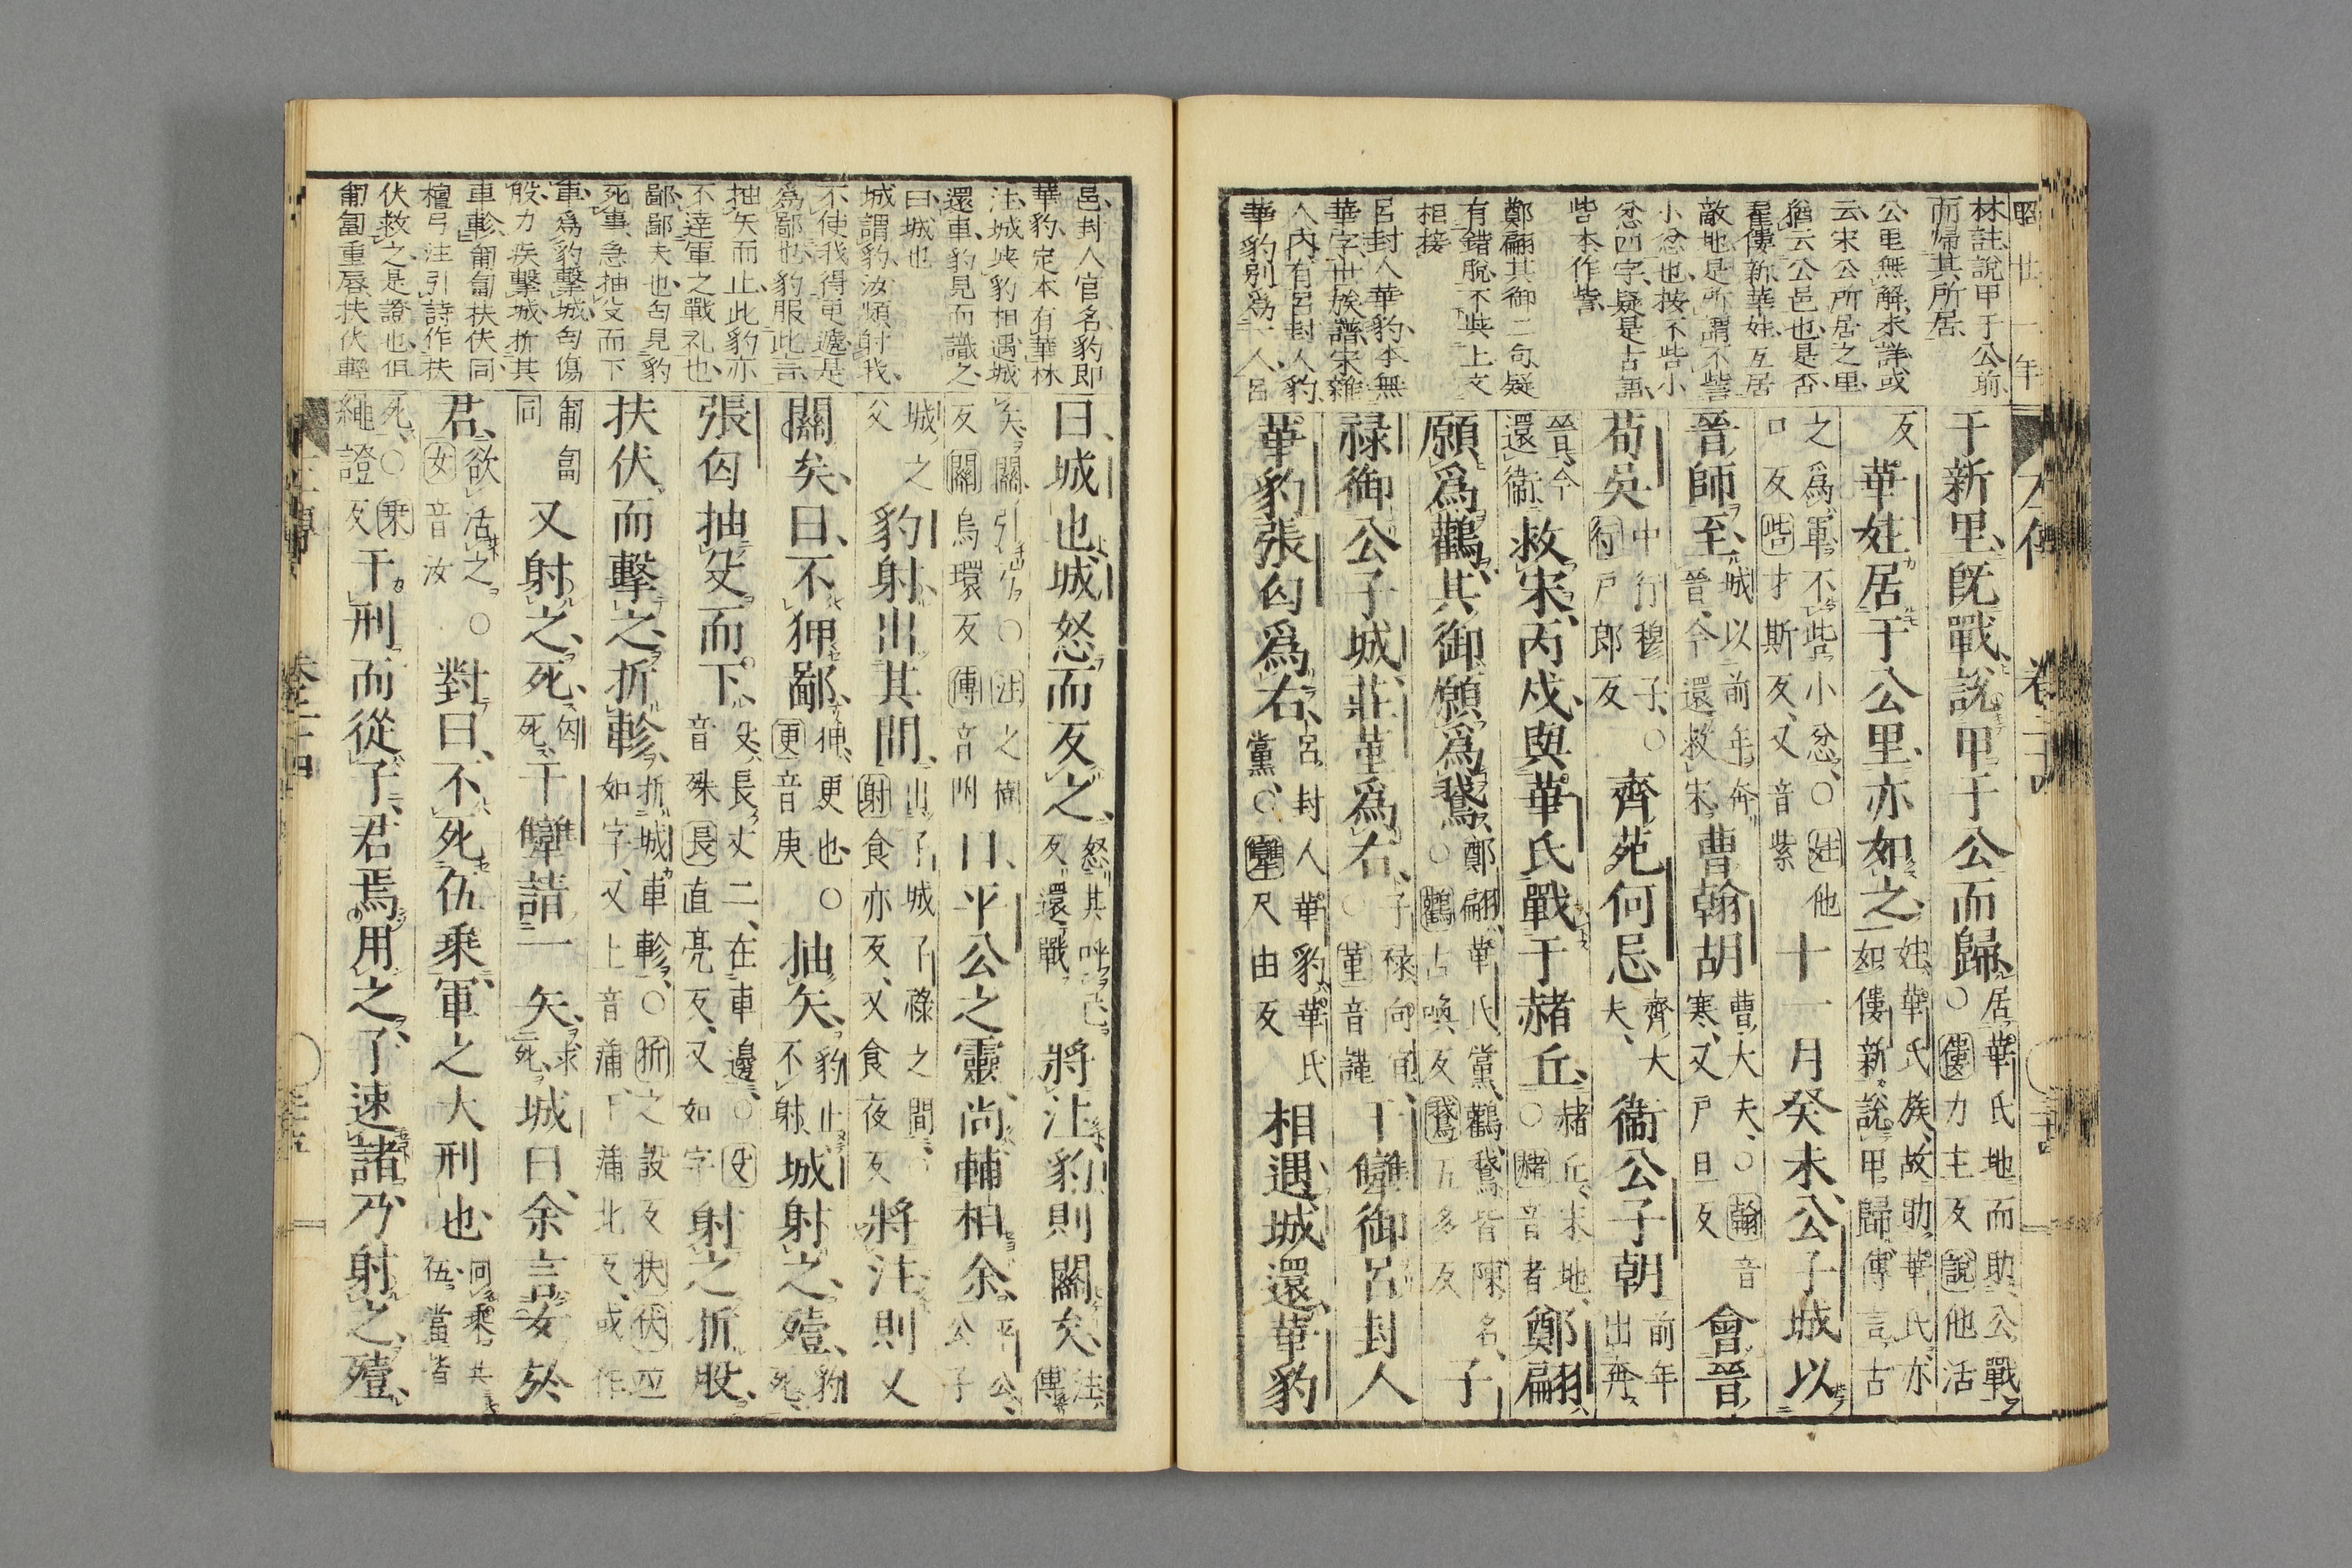 昭廿一年
左傳
卷二十四
林註說甲于公前
而歸其所居
公里無解未詳或
云宋公所居之里
猶云公邑也是否
翟僂新華姓互居
敵地是所謂不呰
小忿也按不呰小
忿四字疑是古語
呰本作訾
鄭翩其御二句疑
有錯脫不與上文
相接
呂封人華豹本無
華字世族譜宋雜
人內有呂封人豹
華豹別爲一人呂
于新里旣戰說甲于公而歸
居華氏地而助公戰
○僂力主反說他活
反
華妵居于公里亦如之
妵華氏族故助華氏亦
如僂新說甲歸傳言古
之爲軍不呰小忿○妵他
口反呰才斯反又音紫
十一月癸未公子城以
晉師至
城以前年奔
晉今還救宋
曹翰胡
曹大夫○翰音
寒又戶旦反
會晉
荀吳
中行穆子○
行戶郎反
齊苑何忌
齊大
夫
衞公子朝
前年
出奔
晉今
還衞
救宋丙戌與華氏戰于赭丘
赭丘宋地
○赭音者
鄭翩
願爲鸛其御願爲鵞
鄭翩華氏黨鸛鵞皆陳名
○鸛古喚反鵞五多反
子
祿御公子城莊堇爲右
子祿向宜
○堇音謹
干犨御呂封人
華豹張匄爲右
呂封人華豹華氏
黨○犨尺由反
相遇城還華豹
邑封人官名豹即
華豹定本有華林
注城挾豹相遇城
還車豹見而識之
曰城也
城謂豹汝頻射我
不使我得更遞是
爲鄙也豹服此言
抽矢而止此豹亦
不達軍之戰礼也
鄙鄙夫也匄見豹
死事急抽殳而下
車爲豹擊城匄傷
股力疾擊城折其
車軫匍匐扶伏同
檀弓注引詩作扶
伏救之是證也但
匍匐重唇扶伏輕
曰城也城怒而反之
怒其呼己
反還戰
將注豹則關矣
注傳
矢關引弓○注之樹
反關烏環反傅音附
曰平公之靈尚輔相余
平公公子
城之
父
豹射出其間
出子城子祿之間○
射食亦反又食夜反
將注則又
關矣曰不狎鄙
狎更也○
更音庚
抽矢
豹止
不射
城射之殪
豹
死
張匄抽殳而下
殳長丈二在車邊○殳
音殊長直亮反又如字
射之折股
扶伏而擊之折軫
折城車軫○折之設反扶伏竝
如字又上音蒲下蒲北反或作
匍匐
同
又射之死
匄
死
干犨請一矢
求
死
城曰余言女於
君
欲活之○
女音汝
對曰不死伍乘軍之大刑也
同乘共
伍當皆
死○乘
繩證反
干刑而從子君焉用之子速諸乃射之殪